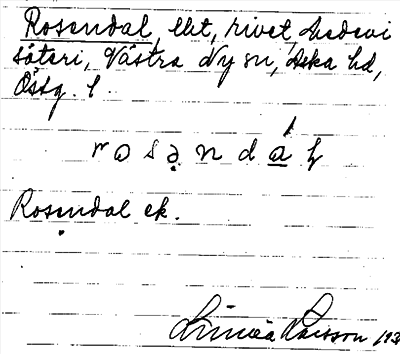 Rosendal, lht, rivet, Medevi
säteri, Västra Ny sn, Aska hd,
Östg. l.
rosəndáɫ
Rosendal ek.
Linnéa Larsson 193